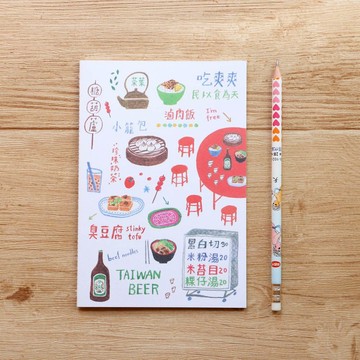 茶葉
吃爽爽
民以食為天
糖葫蘆
滷肉飯
I'm free
小籠包
珍珠奶茶
臭豆腐 stinky tofu
beef noodles
TAIWAN
BEER
黑白切50
米粉湯20
米苔目20
粿仔湯20